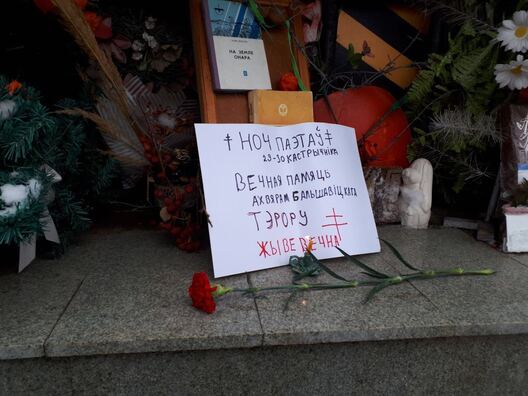 НА ЗЕМЛЕ
ОМАРА
‡ НОЧ ПАЭТАЎ ‡
29-30 КАСТРЫЧНІКА
ВЕЧНАЯ ПАМЯЦЬ
АХВЯРАМ БАЛЬШАВІЦКАГА
ТЭРОРУ
ЖЫВЕ ВЕЧНА